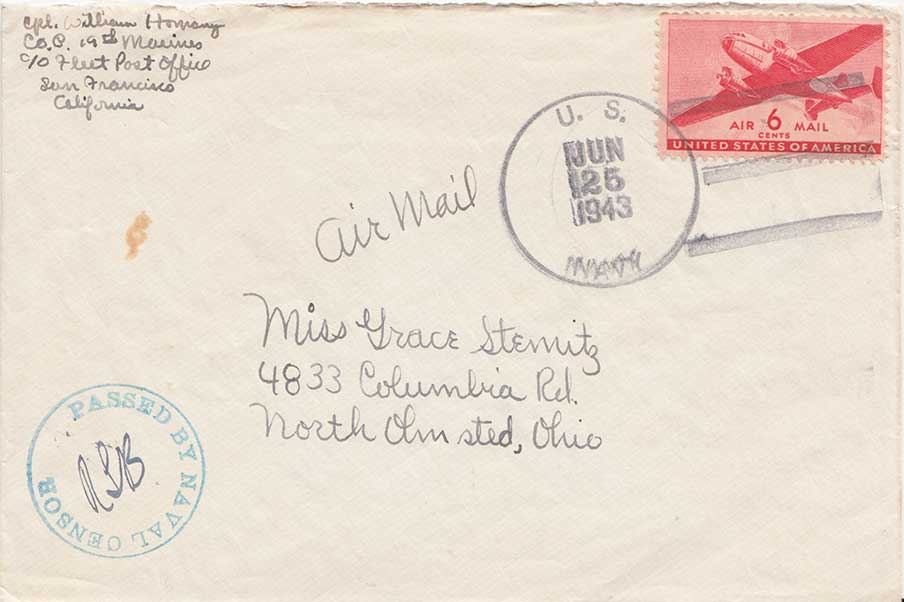 Cpl. William Homany
Co. C. 19th Marines
c/o Fleet Post Office
San Francisco
California
AIR 6 MAIL
CENTS
UNITED STATES OF AMERICA
U. S.
JUN
25
1943
NAVY
Air Mail
Miss Grace Stemitz
4833 Columbia Rd.
North Olmsted, Ohio
PASSED BY NAVAL CENSOR